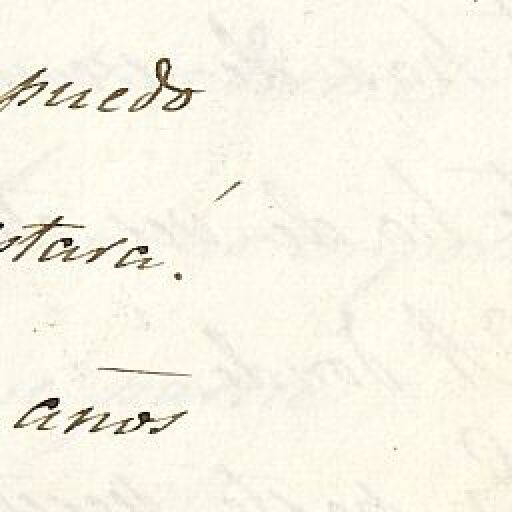 puedo
stará.
años